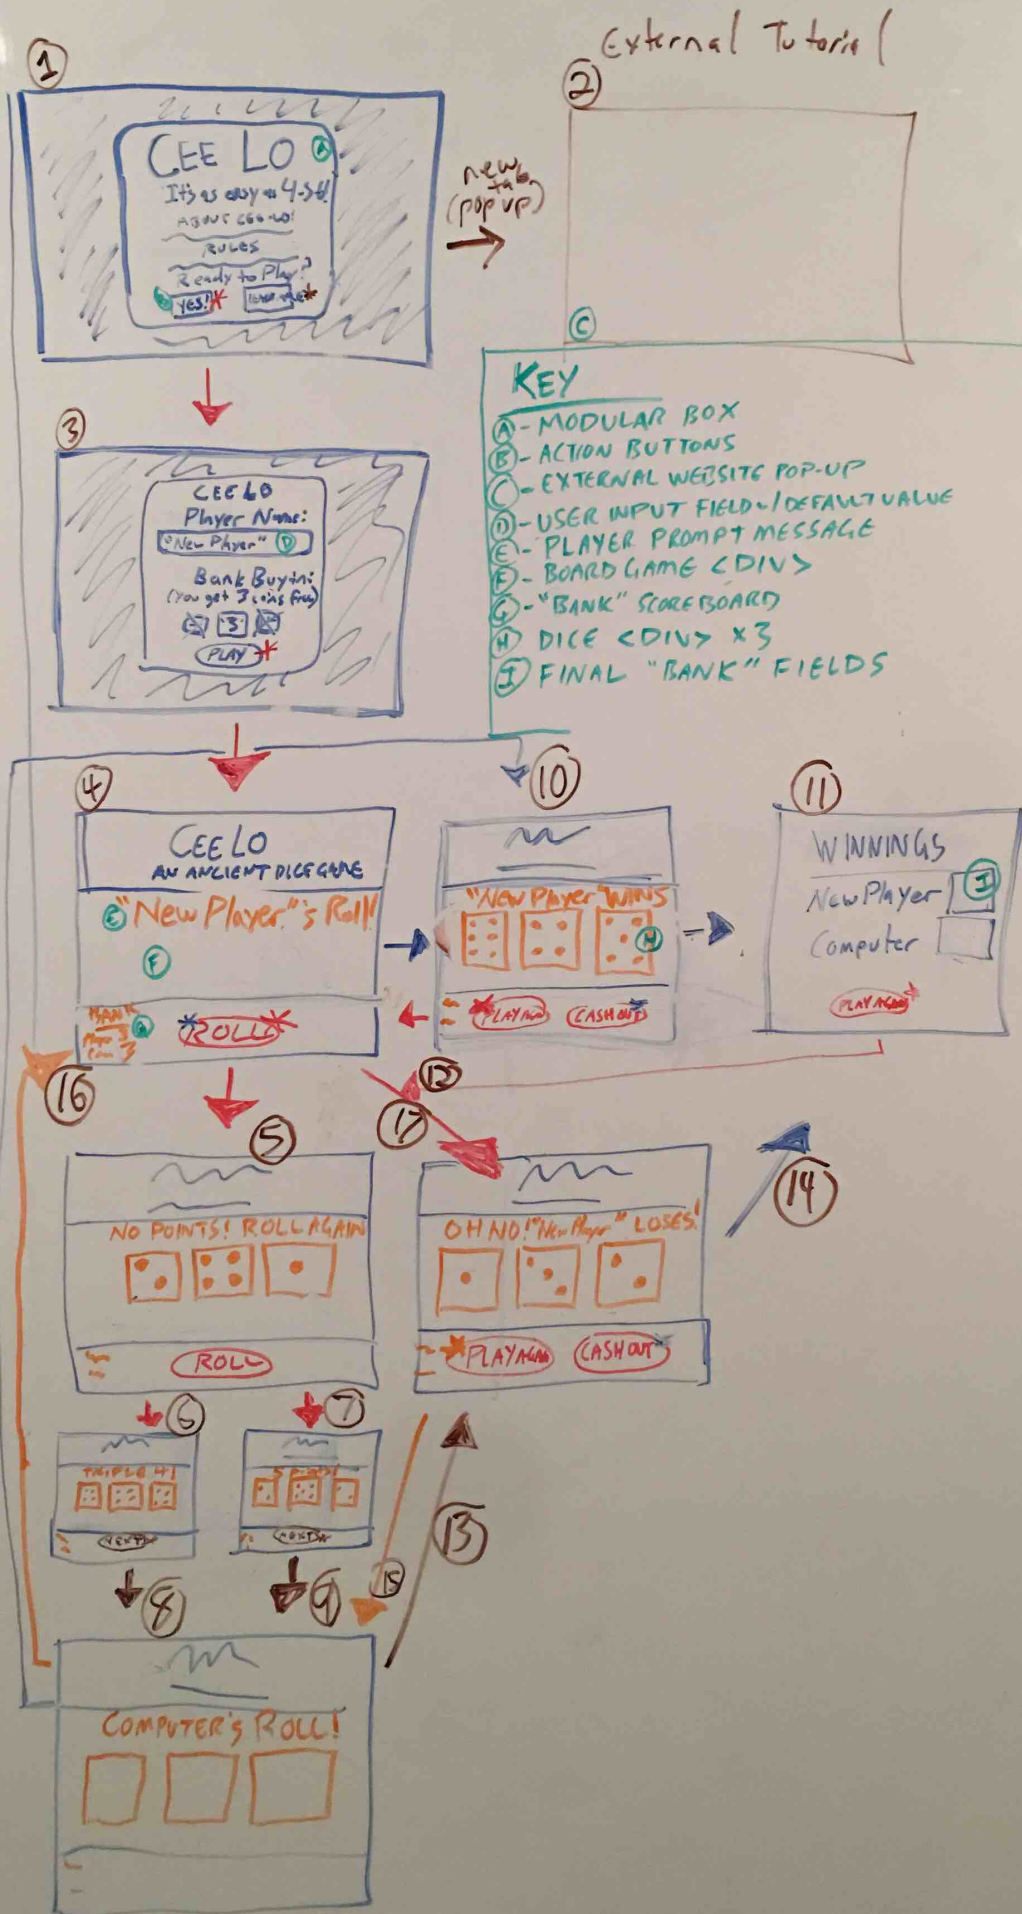 External Tutorial
1
2
CEE LO A
It's as easy as 4-5-6!
ABOUT CEE-LO!
RULES
Ready to Play?
B YES!*
new tab
(pop up)
C
KEY
A - MODULAR BOX
B - ACTION BUTTONS
C - EXTERNAL WEBSITE POP-UP
D - USER INPUT FIELD w/DEFAULT VALUE
E - PLAYER PROMPT MESSAGE
F - BOARD GAME <DIV>
G - "BANK" SCOREBOARD
H DICE <DIV> x3
I FINAL "BANK" FIELDS
3
CEE LO
Player Name:
"New Player" D
Bank Buyin:
(You get 3 coins free)
3
PLAY *
4
CEE LO
AN ANCIENT DICE GAME
E "New Player"'s Roll!
F
BANK
Player 3
Com 3
G
*ROLL*
10
"New Player" WINS
H
*PLAY AGAIN CASH OUT*
11
WINNINGS
New Player I
Computer
PLAY AGAIN*
16
12
17
5
NO POINTS! ROLL AGAIN
ROLL
OH NO! "New Player" LOSES!
*PLAY AGAIN CASH OUT*
14
6
7
TRIPLE 4!
NEXT
NEXT
8
9
15
13
COMPUTER'S ROLL!